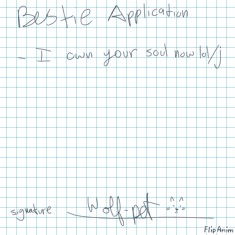 Bestie Application
- I own your soul now lol/j
signature Wolf-pot
FlipAnim